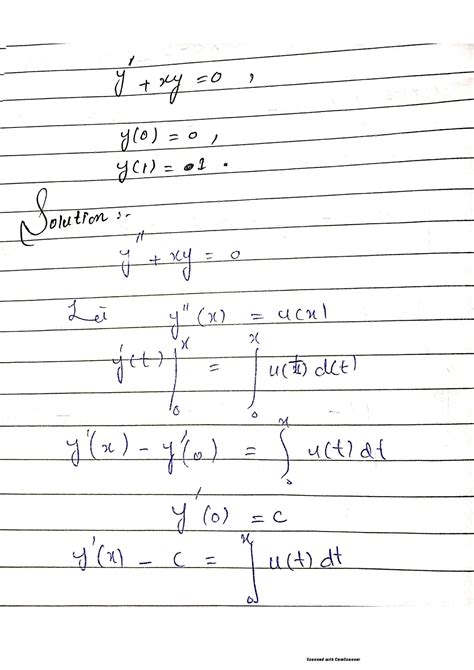 y' + xy = 0 ,
y(0) = 0 ,
y(1) = 1 .
Solution :-
y'' + xy = 0
Let y''(x) = u(x)
y'(t) |₀ˣ = ∫₀ˣ u(t) d(t)
y'(x) - y'(0) = ∫₀ˣ u(t) dt
y'(0) = c
y'(x) - c = ∫₀ˣ u(t) dt
Scanned with CamScanner